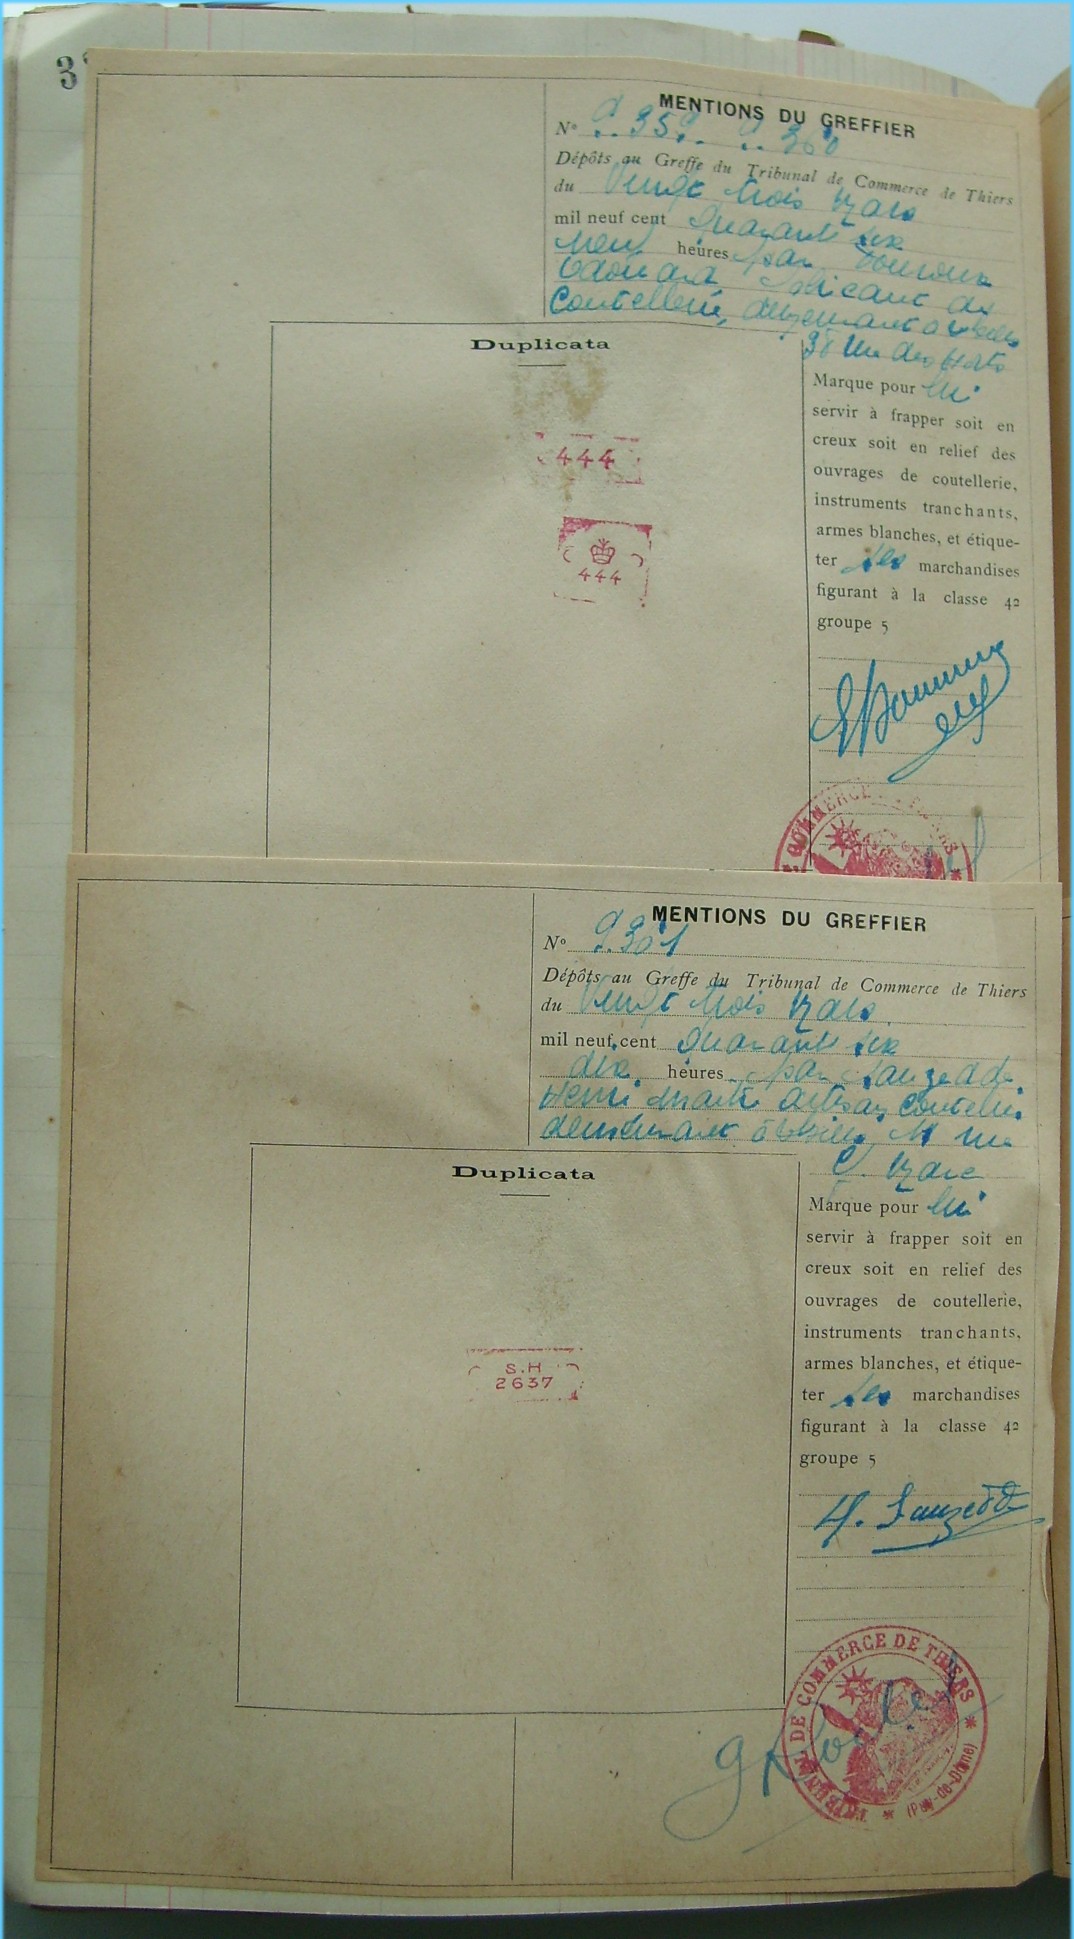 3
MENTIONS DU GREFFIER
Nº 9.359. 9.360
Dépôts au Greffe du Tribunal de Commerce de Thiers
du Vingt trois Mars
mil neuf cent Quarante six
Neuf heures par
Edouard fabricant de
Coutellerie, demeurant à
38 rue des
Duplicata
444
444
Marque pour lui
servir à frapper soit en
creux soit en relief des
ouvrages de coutellerie,
instruments tranchants,
armes blanches, et étique-
ter ses marchandises
figurant à la classe 42
groupe 5
COMMERCE
MENTIONS DU GREFFIER
Nº 9.361
Dépôts au Greffe du Tribunal de Commerce de Thiers
du Vingt trois Mars
mil neuf cent Quarante six
dix heures par Sauzedde
Henri artisan Coutelier
demeurant à Thiers, rue
Duplicata
S.H
2637
Marque pour lui
servir à frapper soit en
creux soit en relief des
ouvrages de coutellerie,
instruments tranchants,
armes blanches, et étique-
ter ses marchandises
figurant à la classe 42
groupe 5
H. Sauzedde
TRIBUNAL DE COMMERCE DE THIERS
(Puy-de-Dôme)